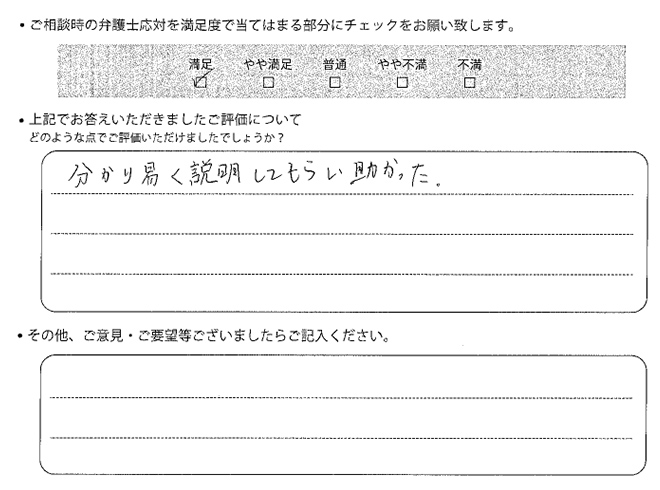 ・ご相談時の弁護士応対を満足度で当てはまる部分にチェックをお願い致します。
満足 やや満足 普通 やや不満 不満
☑ □ □ □ □
・上記でお答えいただきましたご評価について
どのような点でご評価いただけましたでしょうか？
分かり易く説明してもらい助かった。
・その他、ご意見・ご要望等ございましたらご記入ください。